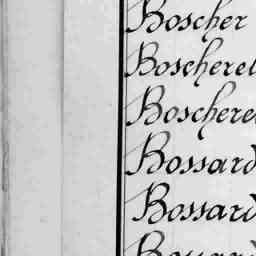 Boscher
Boscherel
Boschere
Bossard
Bossard